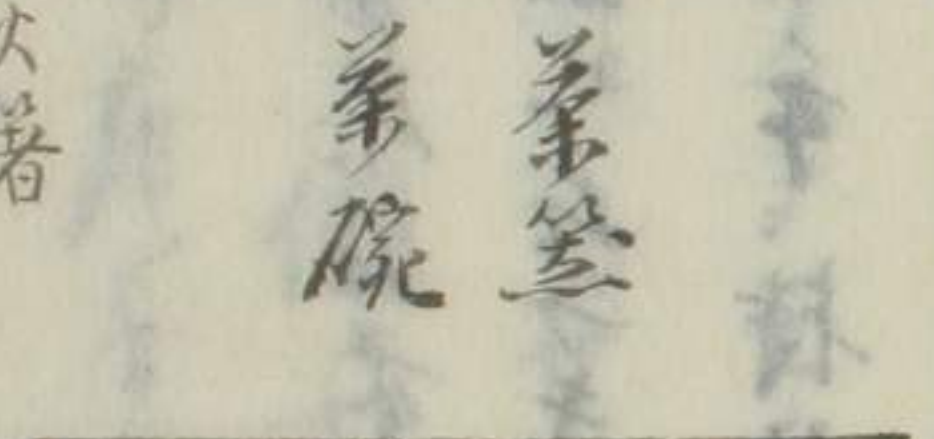 茶筅
茶碗
火箸